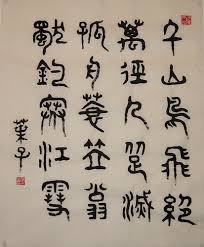 千山鳥飛絕
萬徑人蹤滅
孤舟蓑笠翁
獨釣寒江雪
葉子